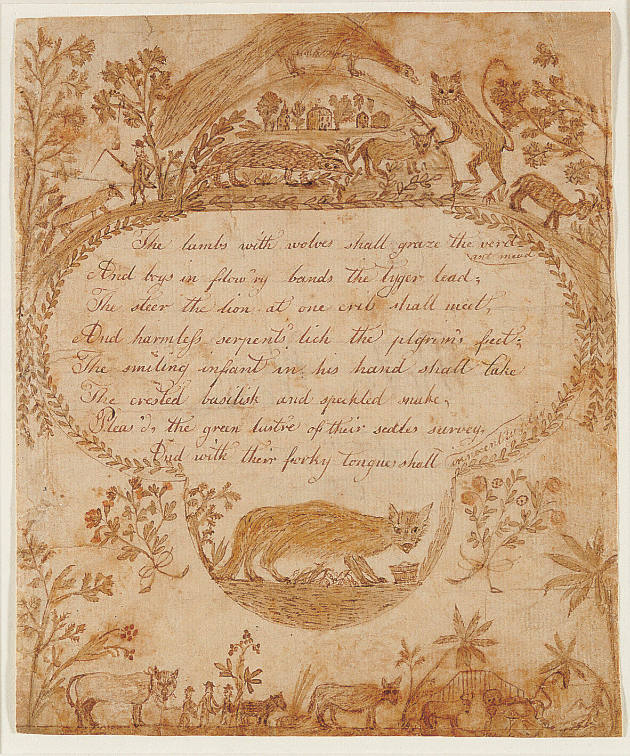 The lambs with wolves shall graze the verd-
ant mead
And boys in flow'ry bands the tyger lead;
The steer the lion at one crib shall meet,
And harmless serpents lick the pilgrims feet;
The smiling infant in his hand shall take
The crested basilisk and speckled snake,
Pleas'd, the green lustre of their scales survey,
And with their forky tongue shall
innocently play